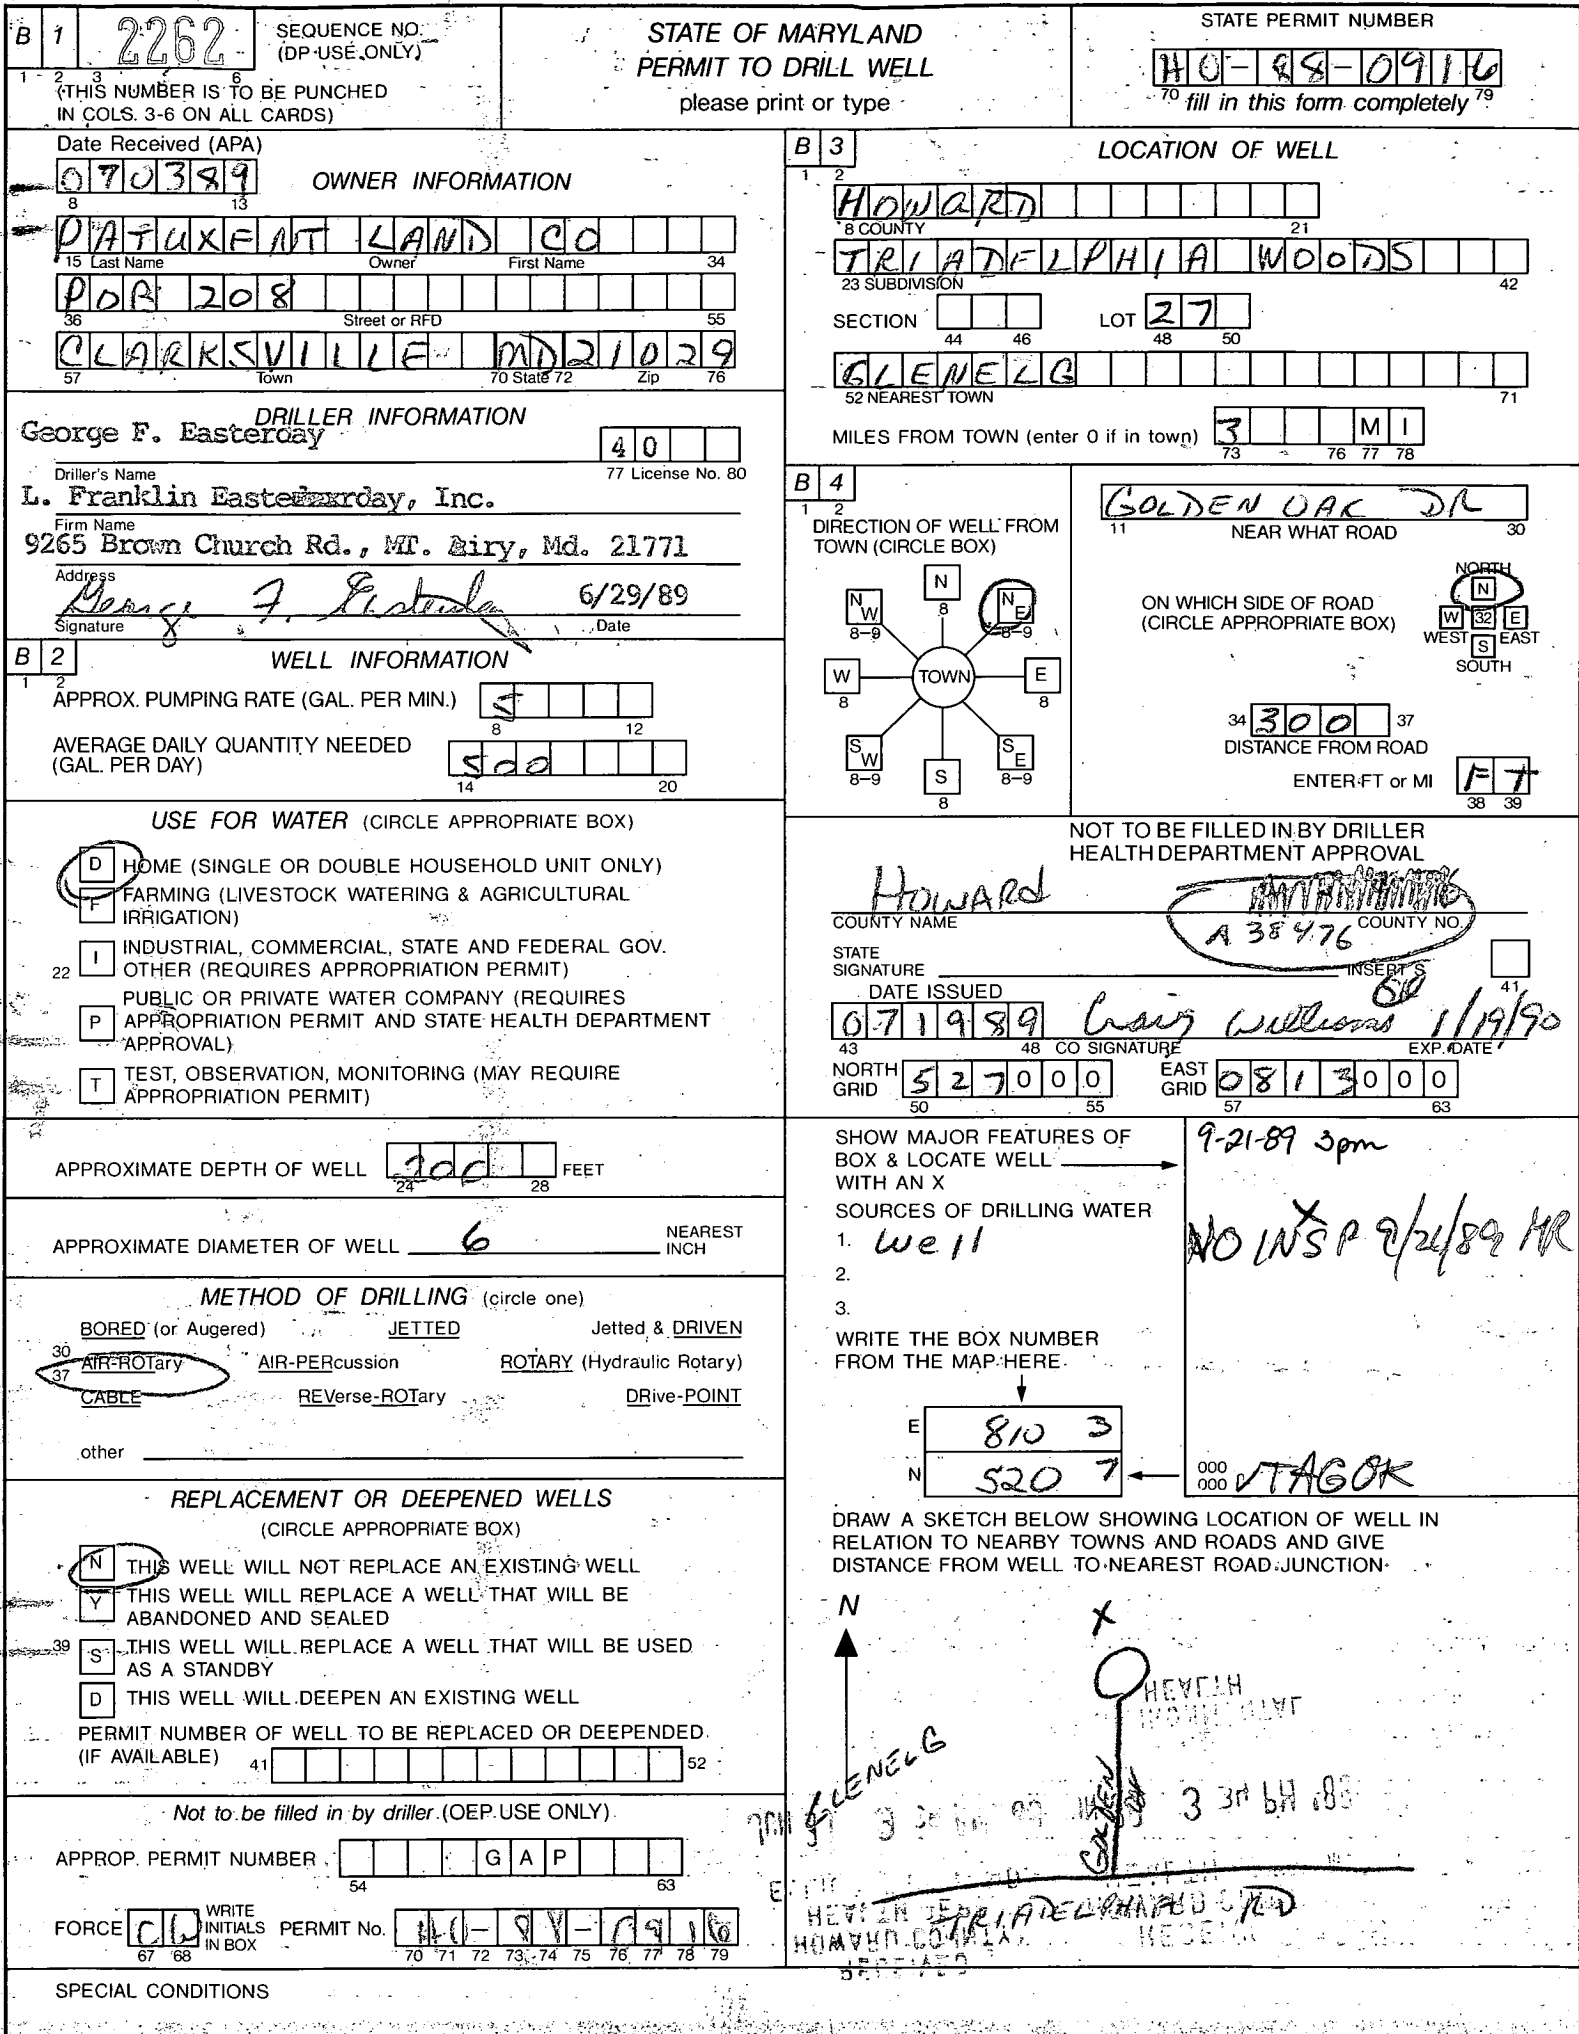 B 1 2262 SEQUENCE NO. (DP USE ONLY)
1 2 3 6
(THIS NUMBER IS TO BE PUNCHED
IN COLS. 3-6 ON ALL CARDS)
STATE OF MARYLAND
PERMIT TO DRILL WELL
please print or type
STATE PERMIT NUMBER
HO-88-0916
70 fill in this form completely 79
Date Received (APA)
070389
8 13
OWNER INFORMATION
PATUXENT LAND CO
15 Last Name Owner First Name 34
POB 208
36 Street or RFD 55
CLARKSVILLE MD 21029
57 Town 70 State 72 Zip 76
DRILLER INFORMATION
George F. Easterday
40
Driller's Name 77 License No. 80
L. Franklin Easterday, Inc.
Firm Name
9265 Brown Church Rd., MT. Airy, Md. 21771
Address
George F. Easterday 6/29/89
Signature Date
B 2 WELL INFORMATION
1 2
APPROX. PUMPING RATE (GAL. PER MIN.) 5
8 12
AVERAGE DAILY QUANTITY NEEDED
(GAL. PER DAY) 500
14 20
USE FOR WATER (CIRCLE APPROPRIATE BOX)
D HOME (SINGLE OR DOUBLE HOUSEHOLD UNIT ONLY)
F FARMING (LIVESTOCK WATERING & AGRICULTURAL
IRRIGATION)
22 I INDUSTRIAL, COMMERCIAL, STATE AND FEDERAL GOV.
OTHER (REQUIRES APPROPRIATION PERMIT)
P PUBLIC OR PRIVATE WATER COMPANY (REQUIRES
APPROPRIATION PERMIT AND STATE HEALTH DEPARTMENT
APPROVAL)
T TEST, OBSERVATION, MONITORING (MAY REQUIRE
APPROPRIATION PERMIT)
APPROXIMATE DEPTH OF WELL 200 FEET
24 28
APPROXIMATE DIAMETER OF WELL 6 NEAREST
INCH
METHOD OF DRILLING (circle one)
BORED (or Augered) JETTED Jetted & DRIVEN
30 AIR-ROTary AIR-PERcussion ROTARY (Hydraulic Rotary)
37
CABLE REVerse-ROTary DRive-POINT
other
REPLACEMENT OR DEEPENED WELLS
(CIRCLE APPROPRIATE BOX)
N THIS WELL WILL NOT REPLACE AN EXISTING WELL
Y THIS WELL WILL REPLACE A WELL THAT WILL BE
ABANDONED AND SEALED
39 S THIS WELL WILL REPLACE A WELL THAT WILL BE USED
AS A STANDBY
D THIS WELL WILL DEEPEN AN EXISTING WELL
PERMIT NUMBER OF WELL TO BE REPLACED OR DEEPENDED
(IF AVAILABLE) 41 52
Not to be filled in by driller (OEP USE ONLY)
APPROP. PERMIT NUMBER GAP
54 63
FORCE CW WRITE
INITIALS
IN BOX PERMIT No. HO-88-0916
67 68 70 71 72 73 74 75 76 77 78 79
SPECIAL CONDITIONS
B 3 LOCATION OF WELL
1 2
HOWARD
8 COUNTY 21
TRIADELPHIA WOODS
23 SUBDIVISION 42
SECTION LOT 27
44 46 48 50
GLENELG
52 NEAREST TOWN 71
MILES FROM TOWN (enter 0 if in town) 3 MI
73 76 77 78
B 4
1 2
DIRECTION OF WELL FROM
TOWN (CIRCLE BOX)
N
8
NW 8-9
NE 8-9
W 8
TOWN
E 8
SW 8-9
SE 8-9
S
8
GOLDEN OAK DR
11 NEAR WHAT ROAD 30
ON WHICH SIDE OF ROAD
(CIRCLE APPROPRIATE BOX)
NORTH
N
W 32 E
WEST EAST
S
SOUTH
34 300 37
DISTANCE FROM ROAD
ENTER FT or MI FT
38 39
NOT TO BE FILLED IN BY DRILLER
HEALTH DEPARTMENT APPROVAL
HOWARD
COUNTY NAME COUNTY NO.
A 38476
STATE
SIGNATURE INSERT S
41
DATE ISSUED
071989 Craig Williams 1/19/90
43 48 CO SIGNATURE EXP. DATE
NORTH
GRID 527000 EAST
GRID 0813000
50 55 57 63
SHOW MAJOR FEATURES OF
BOX & LOCATE WELL
WITH AN X
9-21-89 3pm
SOURCES OF DRILLING WATER
1. well
X
NO INSP 9/21/89 MR
2.
3.
WRITE THE BOX NUMBER
FROM THE MAP HERE
E 810 3
N 520 7
000
000 √TAG OK
DRAW A SKETCH BELOW SHOWING LOCATION OF WELL IN
RELATION TO NEARBY TOWNS AND ROADS AND GIVE
DISTANCE FROM WELL TO NEAREST ROAD JUNCTION
N
X
GLENELG
GOLDEN OAK
TRIADELPHIA RD